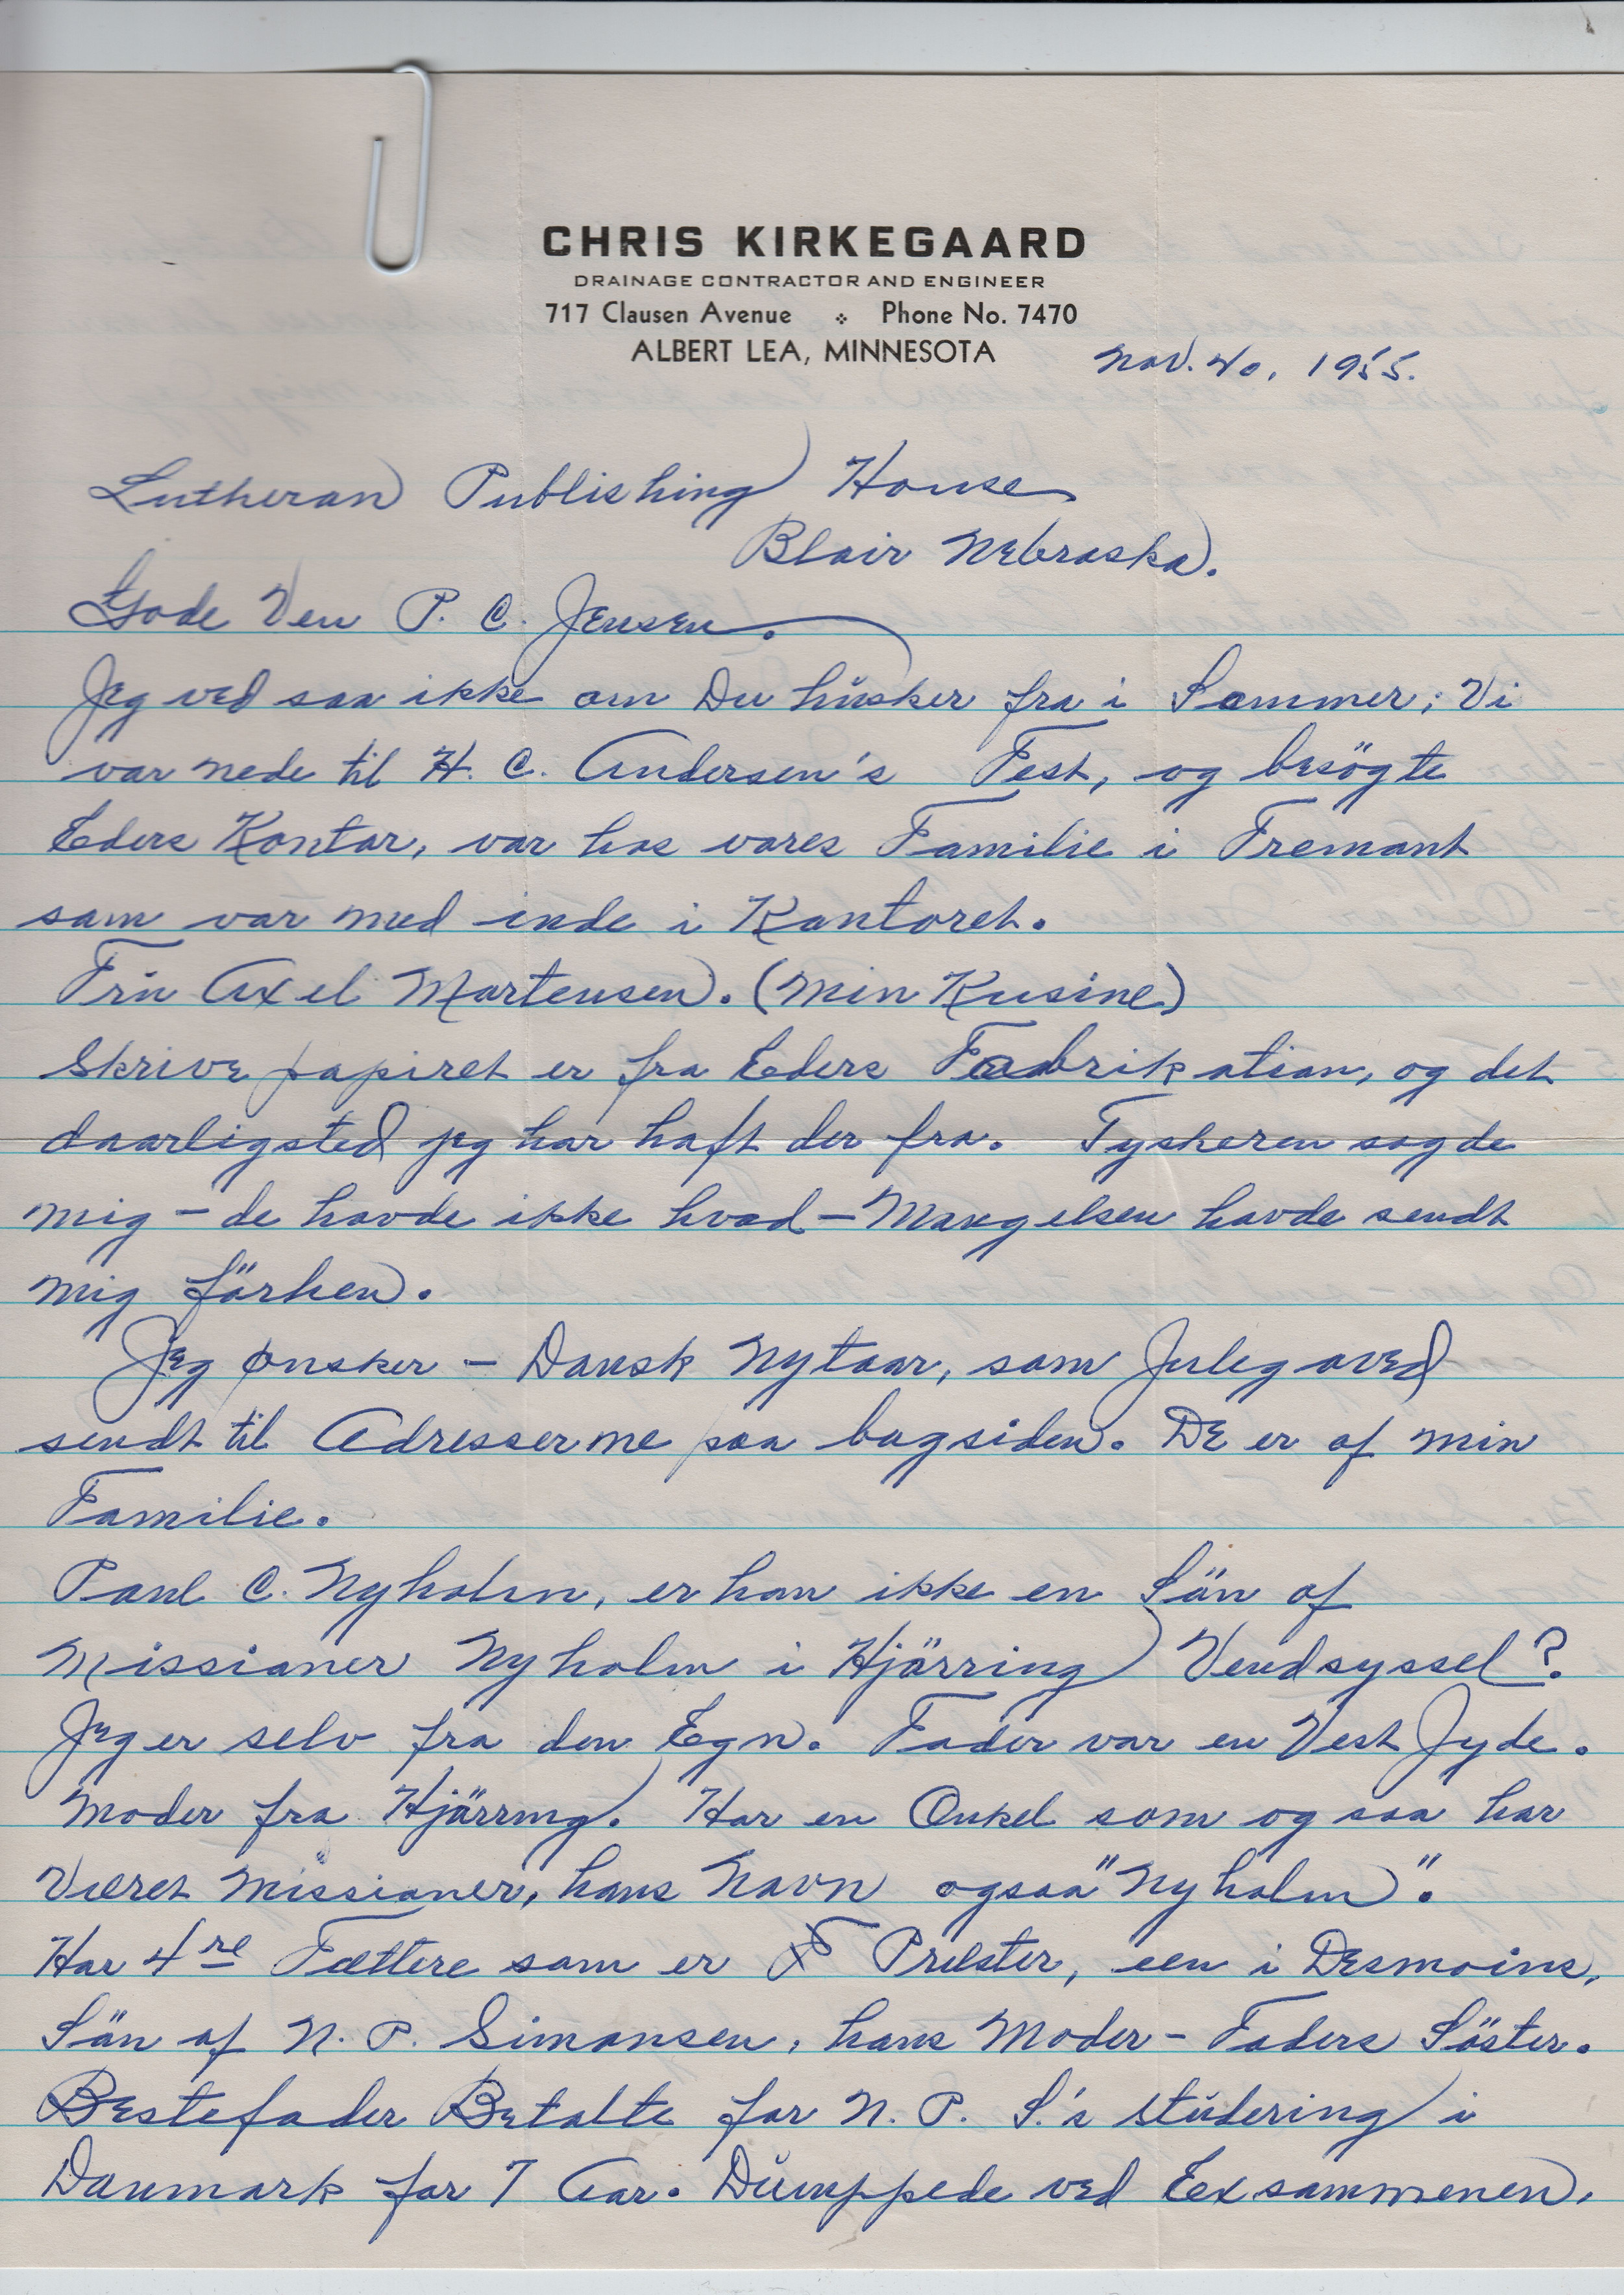 CHRIS KIRKEGAARD
DRAINAGE CONTRACTOR AND ENGINEER
717 Clausen Avenue ❖ Phone No. 7470
ALBERT LEA, MINNESOTA
Nov. 1955.
Lutheran Publishing House
Blair Nebraska.
Gode Ven P. C. Jensen.
Jeg ved saa ikke om Du hŭsker fra i Sommer; Vi
var nede til H. C. Andersen's Fest, og besögte
Eders Kontor, var hos vores Familie i Fremont
som var med inde i Kontoret.
Frŭ Axel Martensen. (Min Kusine)
Skrive papiret er fra Eders Fabrikation, og det
daarligsted jeg har haft der fra. Tyskeren sagde
mig – de havde ikke hvad – Mangelsen havde sendt
mig förhen.
Jeg ønsker – Dansk Nytaar, som Julegaved
sendt til Adresserne paa bagsiden. De er af min
Familie.
Paul C. Nyholm, er han ikke en Sön af
Missionær Nyholm i Hjörring Vendsyssel?
Jeg er selv fra den Egn. Fader var en Vest Jyde.
Moder fra Hjörring. Har en Onkel som og saa har
Været Missionær, hans Navn ogsaa "Nyholm".
Har 4re Fættere som er Præster, een i Desmoins,
Sön af N. P. Simonsen, hans Moder – Faders Söster.
Bestefader Betalte for N. P. S.'s stŭdering i
Danmark for 7 Aar. Dŭmppede ved Eexsammenen.